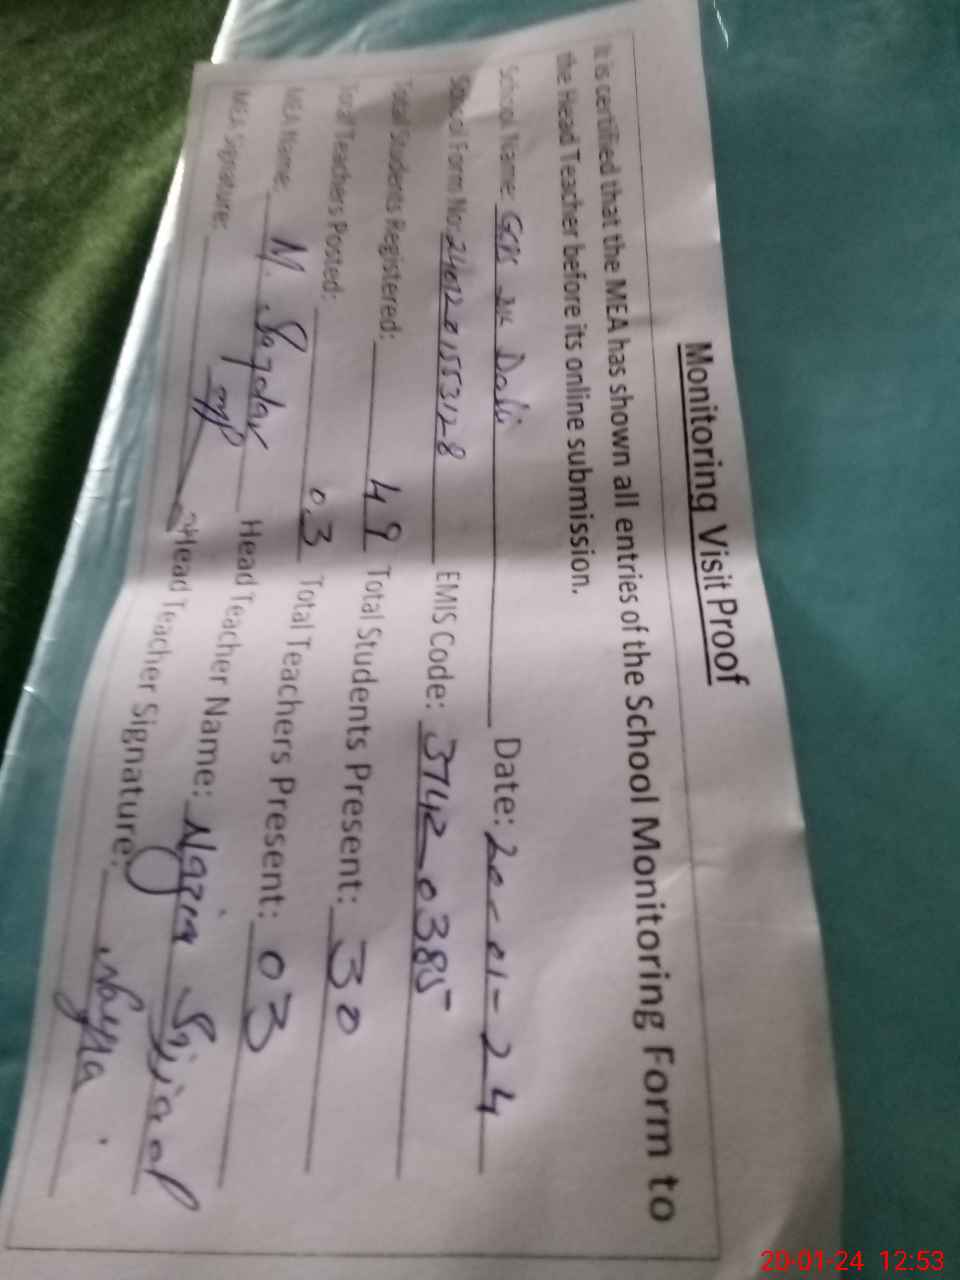 Monitoring Visit Proof
It is certified that the MEA has shown all entries of the School Monitoring Form to
the Head Teacher before its online submission.
School Name: Date: 20-01-24
School Form No: 240120155312-8 EMIS Code: 37420385
Total Students Registered: 49 Total Students Present: 30
Total Teachers Posted: 03 Total Teachers Present: 03
MEA Name: M. Head Teacher Name: Nazia
MEA Signature: Head Teacher Signature: Nazia
20-01-24 12:53